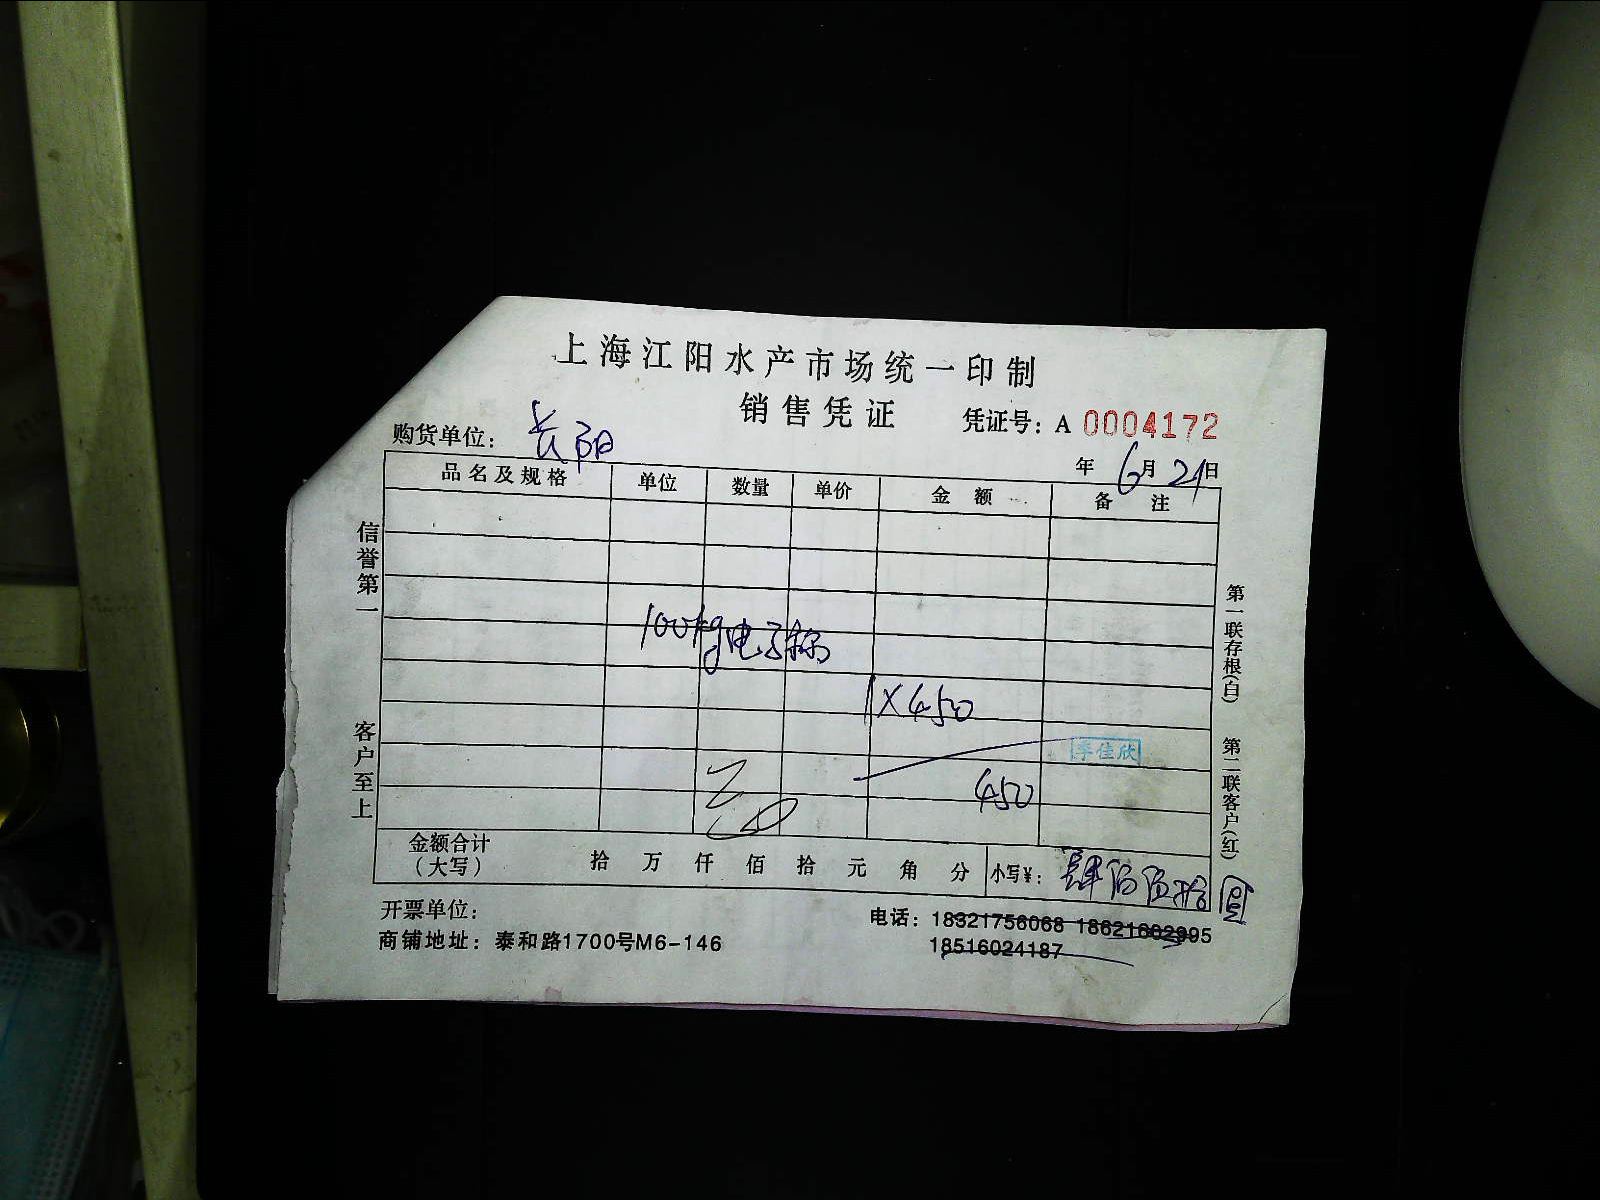 上海江阳水产市场统一印制
销售凭证
凭证号：A 0004172
购货单位：长阳
年 6月21日
品名及规格 单位 数量 单价 金额 备注
100kg电子称
1×450
李佳欣
450
金额合计（大写） 拾 万 仟 佰 拾 元 角 分 小写¥：肆佰伍拾圆
开票单位：
电话：18321756068 18621602995
商铺地址：泰和路1700号M6-146
18516024187
信誉第一
客户至上
第一联存根(白)
第二联客户(红)